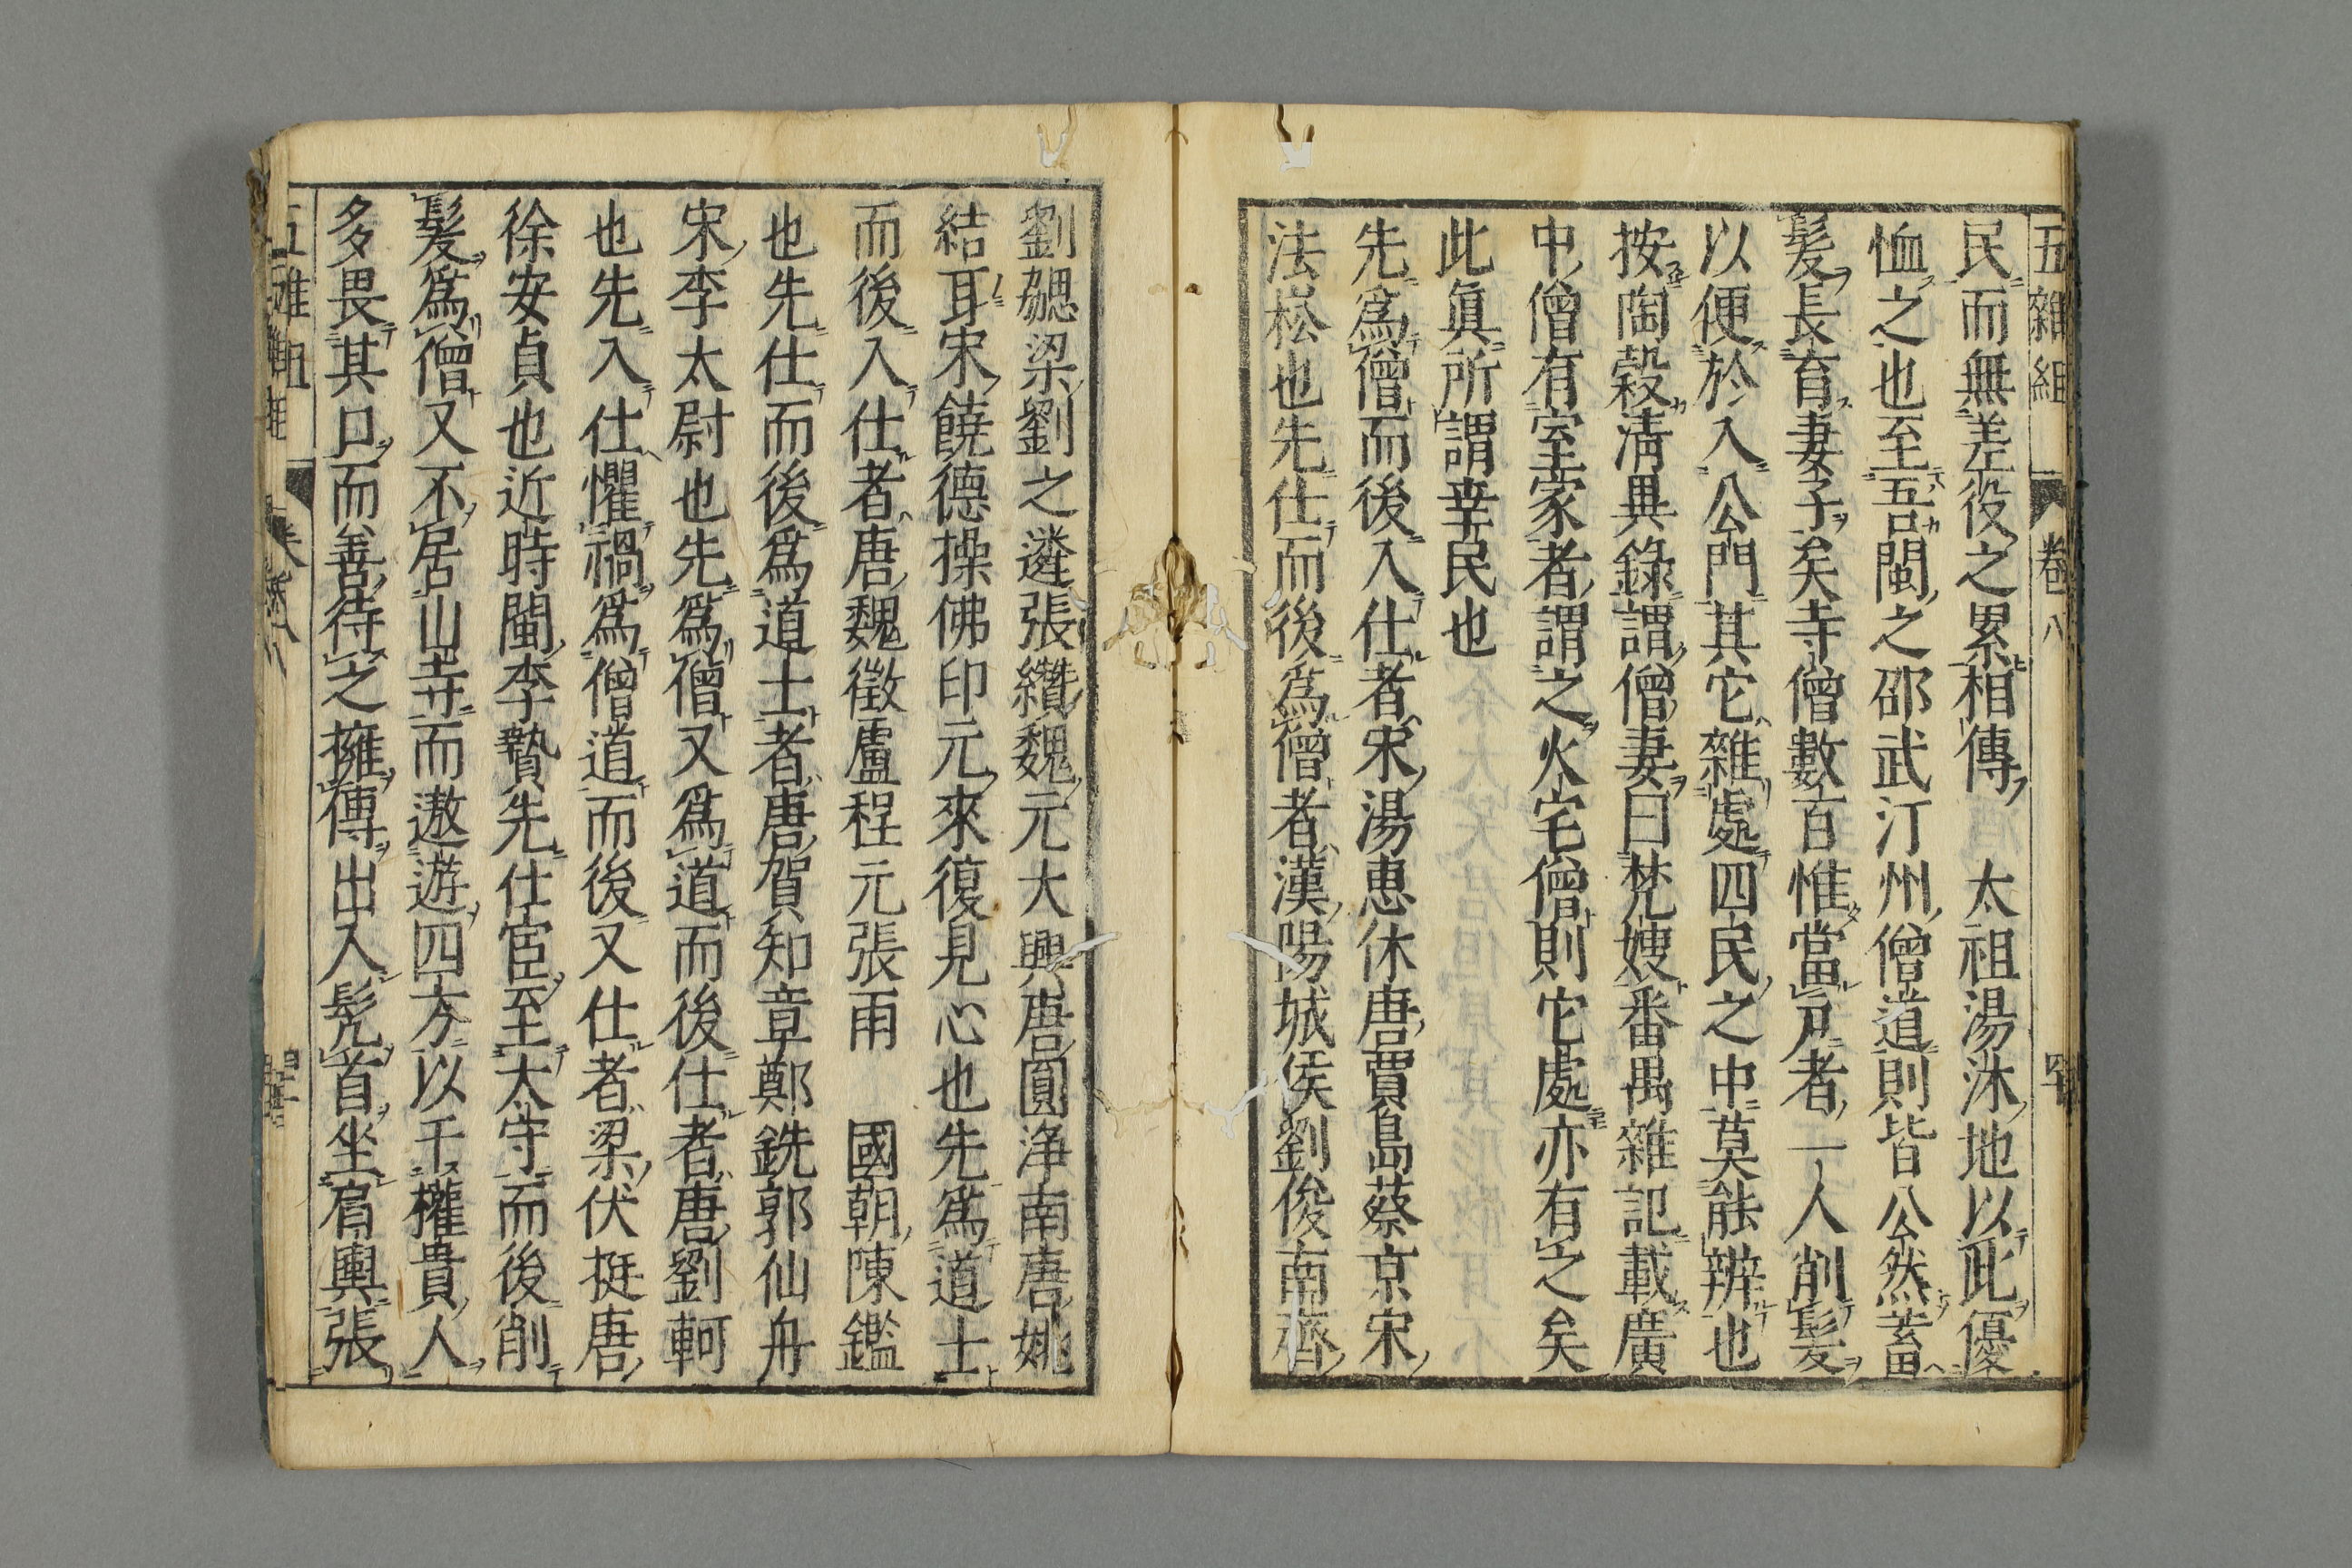 五雜組 卷八
民而無差役之累相傳 太祖湯沐地以此優
恤之也至吾閩之邵武汀州僧道則皆公然蓄
髮長育妻子矣寺僧數百惟當戶者一人削髮
以便於入公門其它雜處四民之中莫能辨也
按陶穀淸異錄謂僧妻曰梵嫂番禺雜記載廣
中僧有室家者謂之火宅僧則它處亦有之矣
此眞所謂幸民也
先爲僧而後入仕者宋湯惠休唐賈島蔡京宋
法崧也先仕而後爲僧者漢陽城侯劉俊南齊
劉勰梁劉之遴張纘魏元大興唐圓淨南唐姚
結耳宋饒德操佛印元來復見心也先爲道士
而後入仕者唐魏徵盧程元張雨 國朝陳鑑
也先仕而後爲道士者唐賀知章鄭銑郭仙舟
宋李太尉也先爲僧又爲道而後仕者唐劉軻
也先入仕懼禍爲僧道而後又仕者梁伏挺唐
徐安貞也近時閩李贄先仕宦至太守而後削
髮爲僧又不居山寺而遨遊四方以干權貴人
多畏其口而善待之擁傳出入髡首坐肩輿張